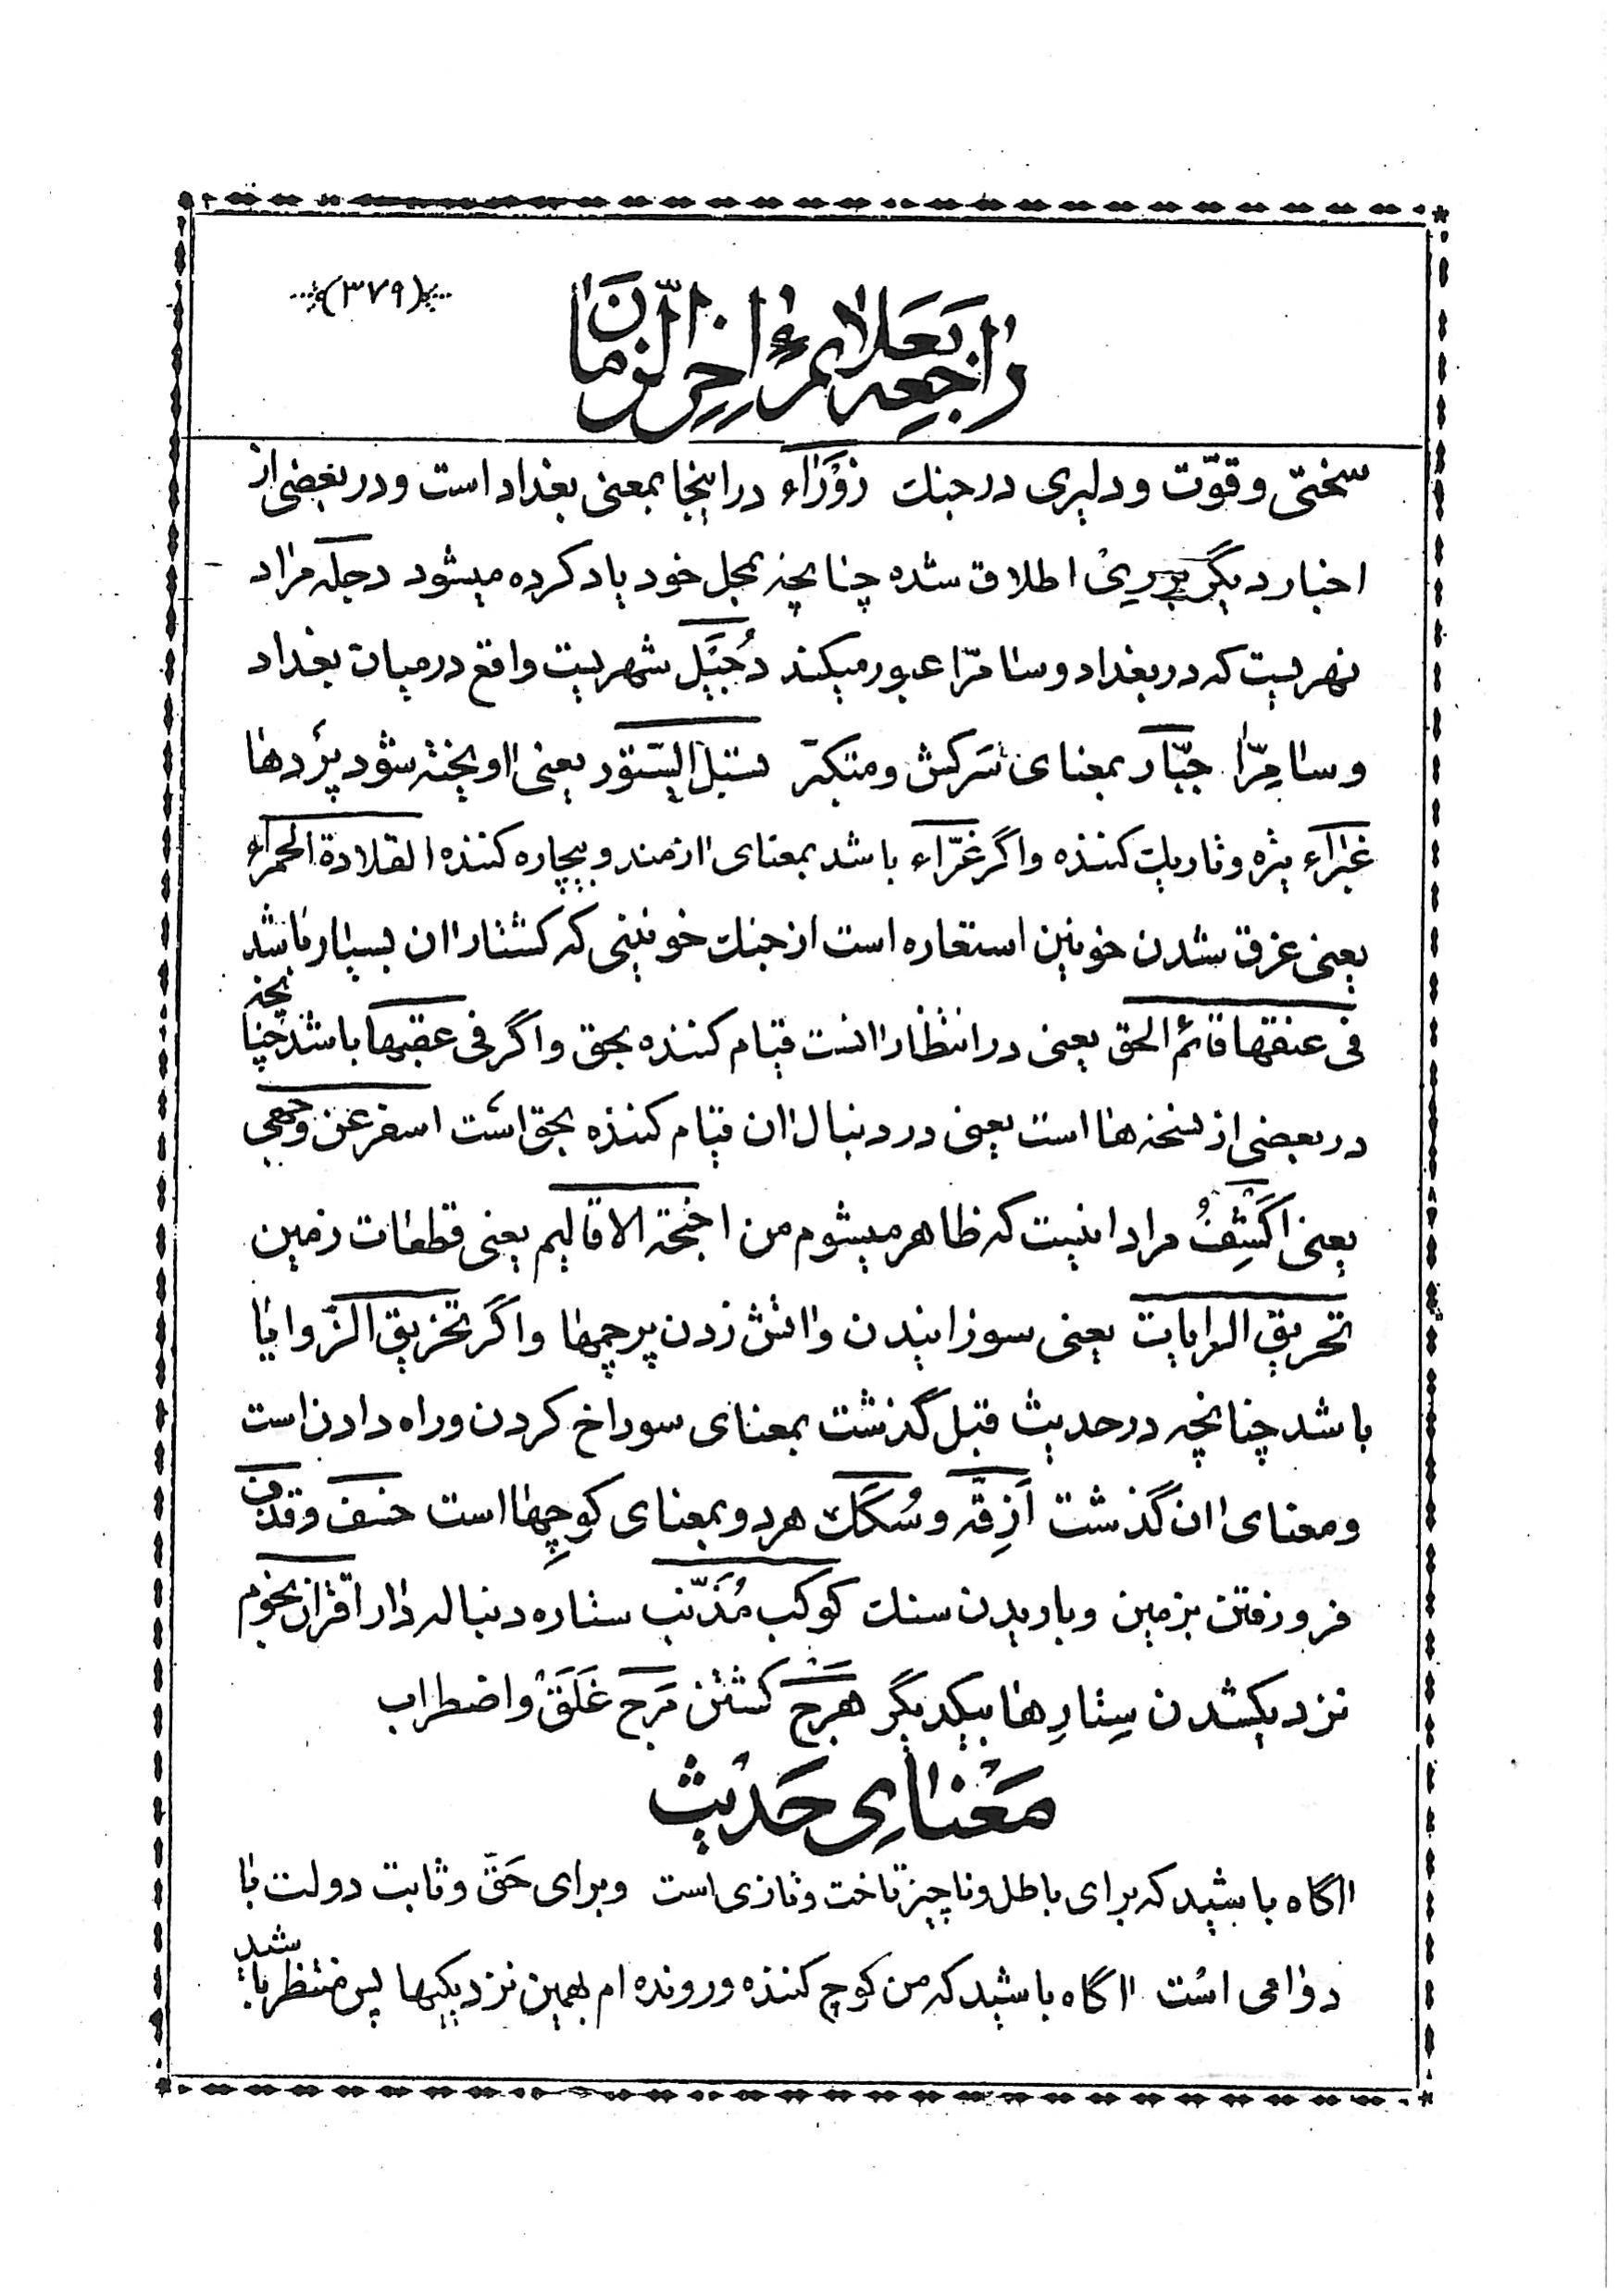 (۳۷۹)
راجعه بعلائم اخر الزمان
سختی و قوّت و دلیری در جنك زَوْرٰاء در اینجا بمعنی بغداد است و در بعضی از
اخبار دیگر بر رِیْ اطلاق شده چنانچه بمحل خود یاد کرده میشود دجله مرٰاد
نهریست که در بغداد و سٰامرّا عبور میکند دُجَیَل شهریست واقع در میان بغداد
و سٰامِرّٰا جبّار بمعنای سَرکش و متکبّر تسبّل الستور یعنی اویخته شود پرٔدهٰا
غبرٰاء تیره و تاریك کننده و اگر غرّاء باشد بمعنای ازمند و بیچاره کننده القلادة الحمرٰاء
یعنی غرق شدن خونین استعاره است از جنك خونینی که کشتار ان بسیار باشد
فی عنقها قائم الحق یعنی در انتظار انست قیام کننده بحق و اگر فی عقبها باشد چنانچه
در بعضی از نسخه هٰا است یعنی در دنبال ان قیام کننده بحق است اسفر عن وجهی
یعنی اَکْشِفُ مراد اینست که ظاهر میشوم من اجنحة الاقالیم یعنی قطعات زمین
تحریق الرایات یعنی سوزانیدن و اتش زدن پرچمهٰا و اگر تخزیق الزّوایٰا
باشد چنانچه در حدیث قبل گذشت بمعنای سوراخ کردن و راه دادن است
و معنای ان گذشت اَزِقّه و سُکَك هر دو بمعنای کوچِهٰا است خسف و قذف
فرو رفتن بزمین و باریدن سنك کوکب مُذَنّب ستاره دنباله دٰار اقتران نجوم
نزدیکشدن سِتارِهٰا بیکدیگر هَرْج کشتن مَرج غَلَقْ و اضطراب
مَعْنٰایِ حَدیْث
اگاه باشید که برای باطل و ناچیز تاخت و تازی است و برای حَقّ و ثابت دولت بٰا
دوٰامی است اگاه باشید که من کوچ کننده و رونده ام بهمین نزدیکیها پس منتظر باشید